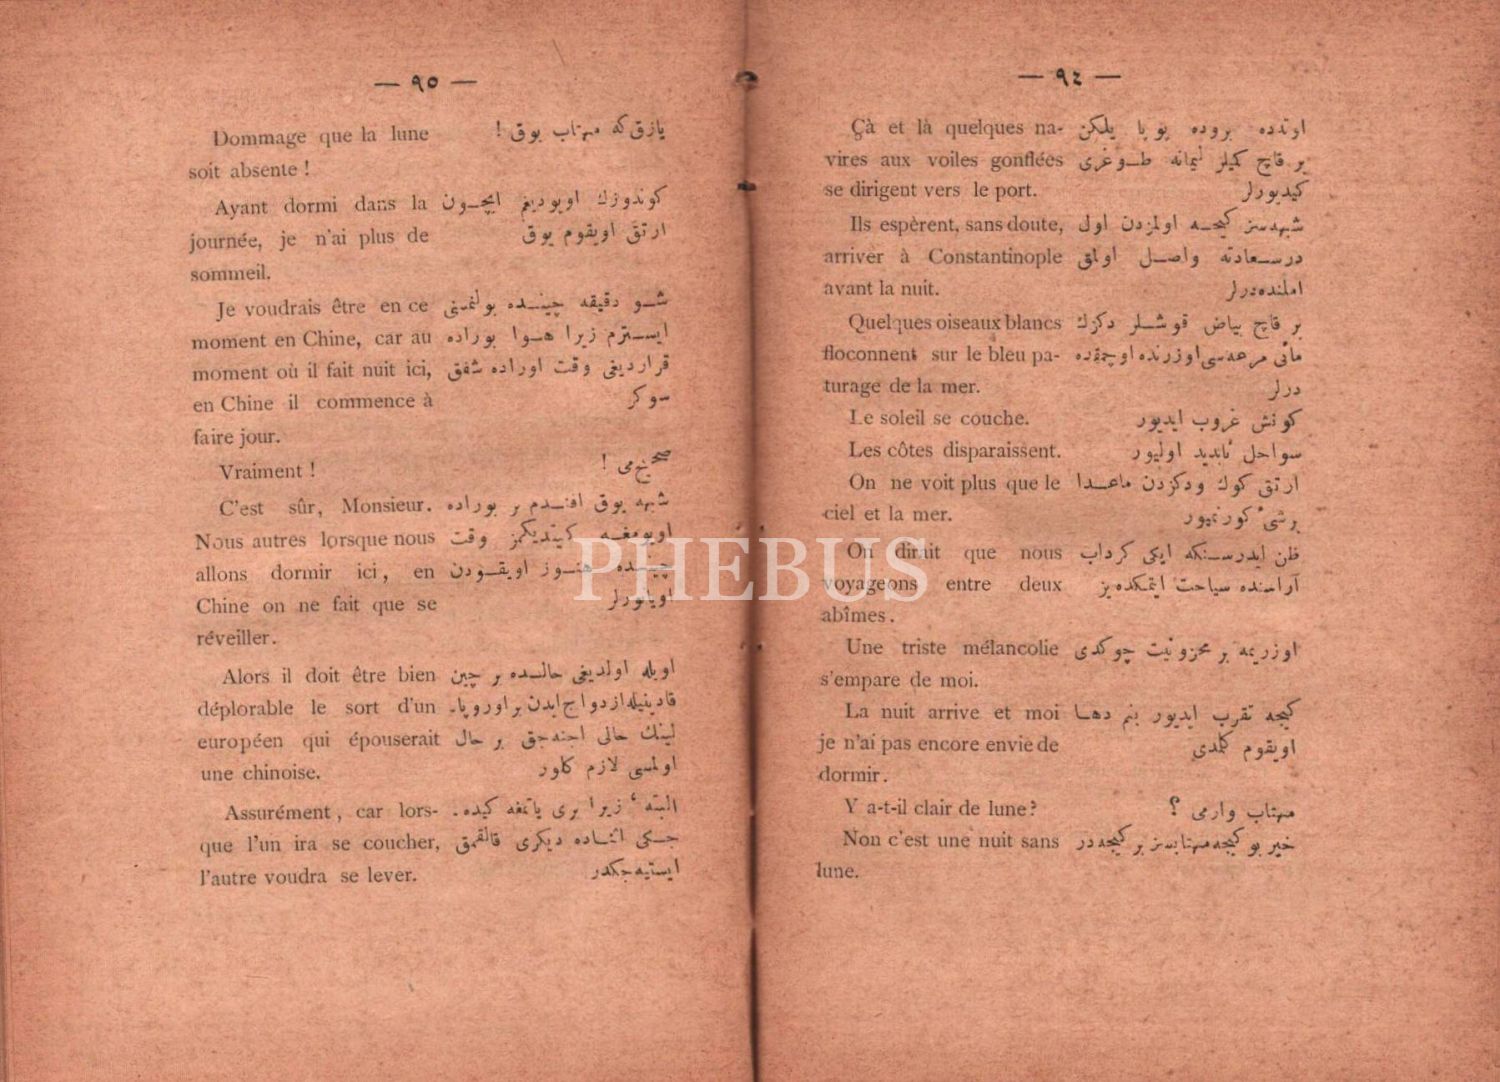 — ٩٤ —
Çà et là quelques na-
vires aux voiles gonflées
se dirigent vers le port.
اوتده بروده پوپا یلکن
بر قاچ کمیلر لیمانه طـوغری
کیدیورلر
Ils espèrent, sans doute,
arriver à Constantinople
avant la nuit.
شبهه‌سز کیجـه اولمزدن اول
درسـعادته واصـل اولمق
املنده‌درلر
Quelques oiseaux blancs
floconnent sur le bleu pa-
turage de la mer.
بر قاچ بیاض قوشـلر دکزك
مائی مرعه‌سی اوزرنده اوچمقده
درلر
Le soleil se couche.
کونش غروب ایدیور
Les côtes disparaissent.
سواحل نابدید اولیور
On ne voit plus que le
ciel et la mer.
ارتق کوك ودکزدن ماعـدا
برشی کورنمیور
On dirait que nous
voyageons entre deux
abîmes.
ظن ایدرسـنکه ایکی کرداب
آراسنده سیاحت ایتمکده‌یز
Une triste mélancolie
s'empare de moi.
اوزریمه بر محزونیت چوکدی
La nuit arrive et moi
je n'ai pas encore envie de
dormir.
کیجه تقرب ایدیور بنم دهـا
اویقوم کلمدی
Y a-t-il clair de lune?
مهتاب وارمی ؟
Non c'est une nuit sans
lune.
خیر بو کیجه مهتابسز بر کیجه‌در
— ٩٥ —
Dommage que la lune
soit absente !
یازق که مهتاب یوق !
Ayant dormi dans la
journée, je n'ai plus de
sommeil.
کوندوزك اویودیغم ایچـون
ارتق اویقوم یوق
Je voudrais être en ce
moment en Chine, car au
moment où il fait nuit ici,
en Chine il commence à
faire jour.
شـو دقیقه چینـده بولنمسنی
ایسـترم زیرا هـوا بوراده
قراردیغی وقت اوراده شفق
سوکر
Vraiment !
صحیح می !
C'est sûr, Monsieur.
Nous autres lorsque nous
allons dormir ici, en
Chine on ne fait que se
réveiller.
شبهه یوق افنـدم بز بوراده
اویومغـه کیتدیکمز وقت
چینـده هنـوز اویقـودن
اویانورلر
Alors il doit être bien
déplorable le sort d'un
européen qui épouserait
une chinoise.
اویله اولدیغی حالـده بر چین
قادینیله ازدواج ایدن بر اوروپا-
لینك حالی اجنه‌جق بر حال
اولمسی لازم کلور
Assurément, car lors-
que l'un ira se coucher,
l'autre voudra se lever.
البته ، زیرا بری یاتمغه کیده-
جـکی اثنـاده دیکری قالقمق
ایستیه‌جکدر
PHEBUS